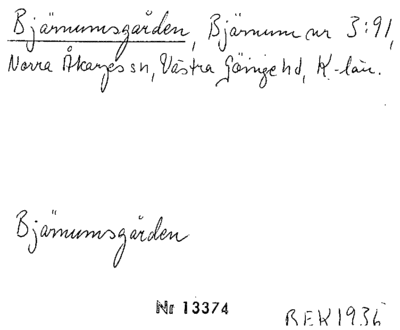 Bjärnumsgården, Bjärnum nr 3:91,
Norra Åkarps sn, Västra Göinge hd, K-län.
Bjärnumsgården
Nr 13374
BEK1936